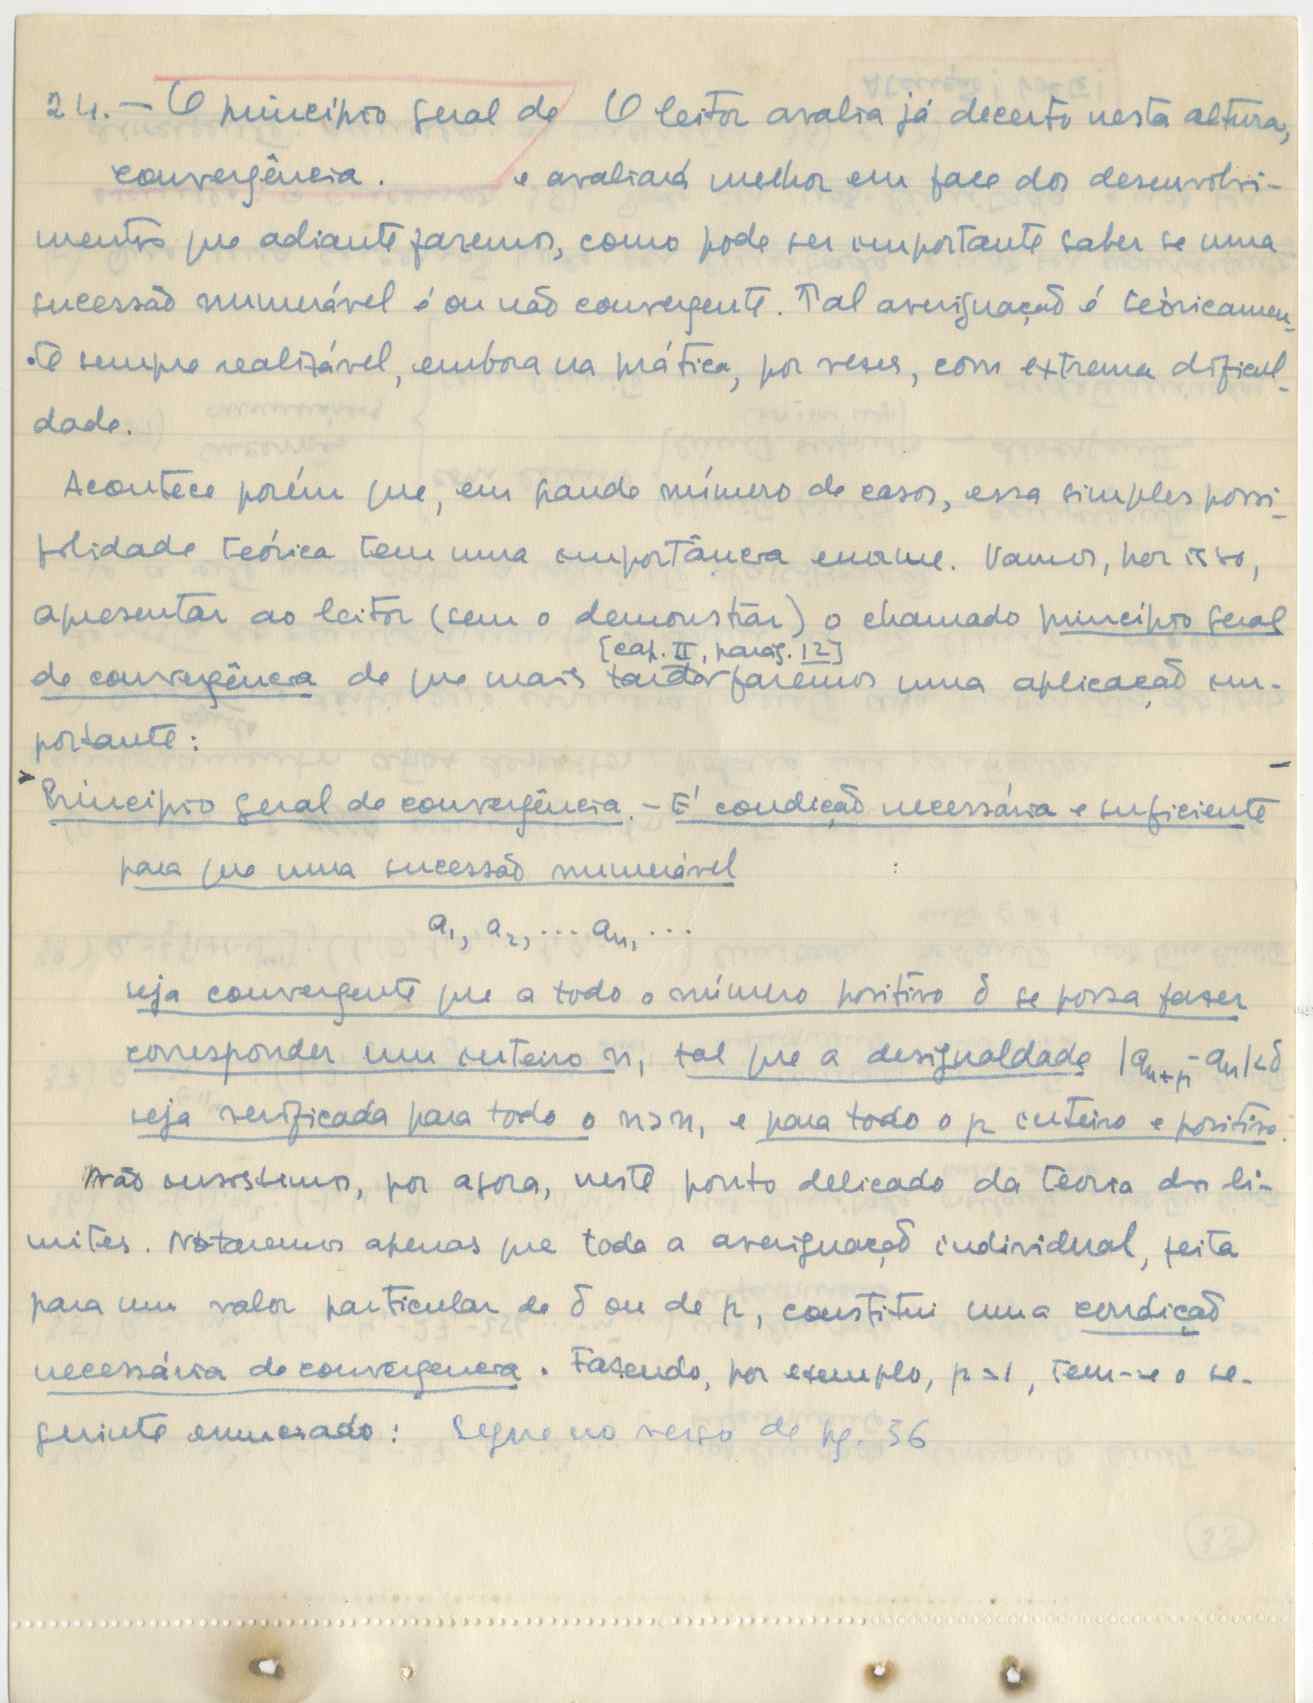 24. — O princípio geral de O leitor avalia já decerto nesta altura,
convergência. e avaliará melhor em face dos desenvolvi-
mentos que adiante faremos, como pode ser importante saber se uma
sucessão numerável é ou não convergente. Tal averiguação é teòricamen-
te sempre realizável, embora na prática, por vezes, com extrema dificul-
dade.
Acontece porém que, em grande número de casos, essa simples possi-
bilidade teórica tem uma importância enorme. Vamos, por isso,
apresentar ao leitor (sem o demonstrar) o chamado princípio geral
[cap. II, parág. 12]
de convergência de que mais tarde faremos uma aplicação im-
portante:
Princípio geral de convergência. — É condição necessária e suficiente
para que uma sucessão numerável :
a1, a2, ... an, ...
seja convergente que a todo o número positivo δ se possa fazer
corresponder um inteiro n, tal que a desigualdade |an+p - an|<δ
seja verificada para todo o n>n, e para todo o p inteiro e positivo.
Não insistimos, por agora, neste ponto delicado da teoria dos li-
mites. Notaremos apenas que toda a averiguação individual, feita
para um valor particular de δ ou de p, constitui uma condição
necessária de convergencia. Fazendo, por exemplo, p=1, tem-se o se-
guinte enunciado: Segue no verso de pg. 36